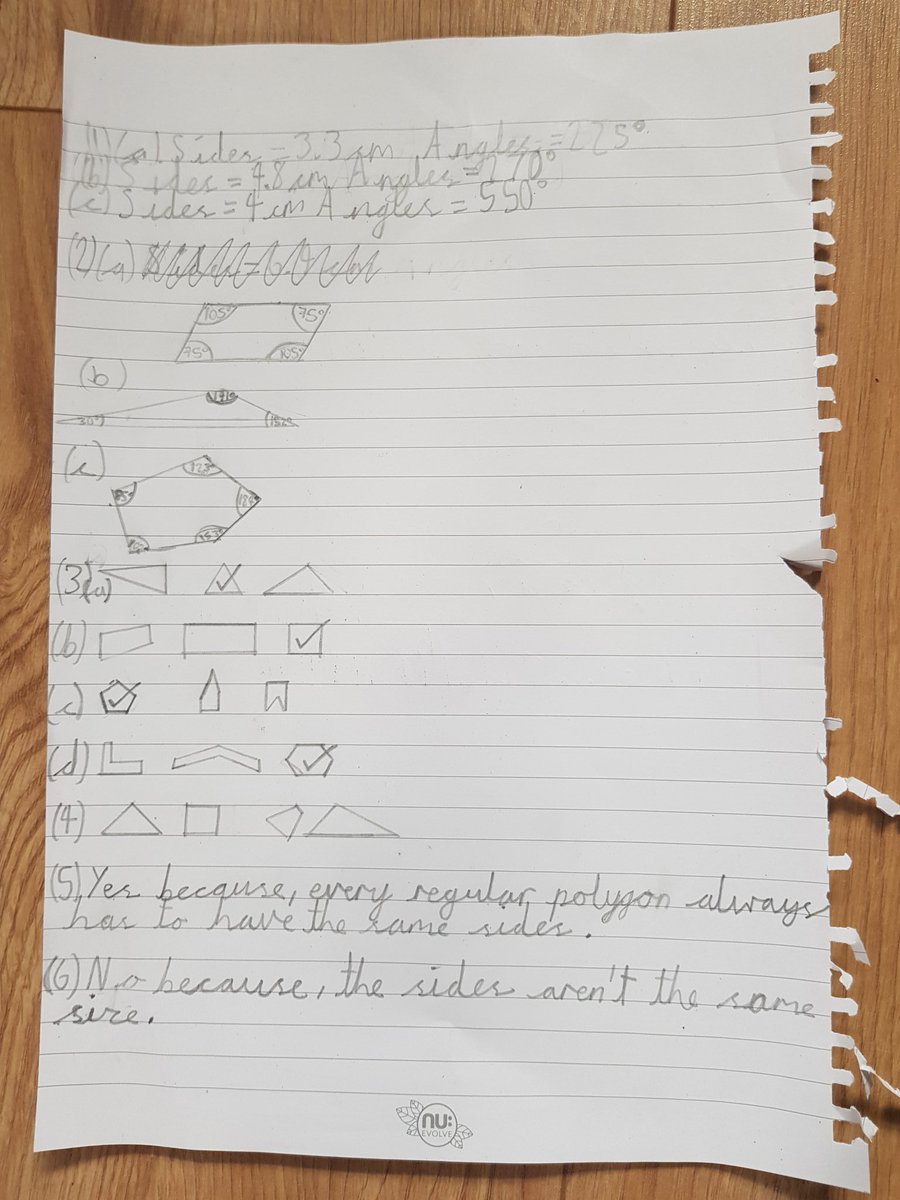 (1)(a) Sides = 3.3 cm Angles = 225°
(b) Sides = 4.8 cm Angles = 270°
(c) Sides = 4 cm Angles = 550°
(2)(a)
105° 75°
75° 105°
(b)
171°
30° 152°
(c)
123°
95°
128°
153°
(3)(a)
(b)
(c)
(d)
(4)
(5) Yes because, every regular polygon always
has to have the same sides.
(6) No because, the sides aren't the same
size.
nu:
EVOLVE